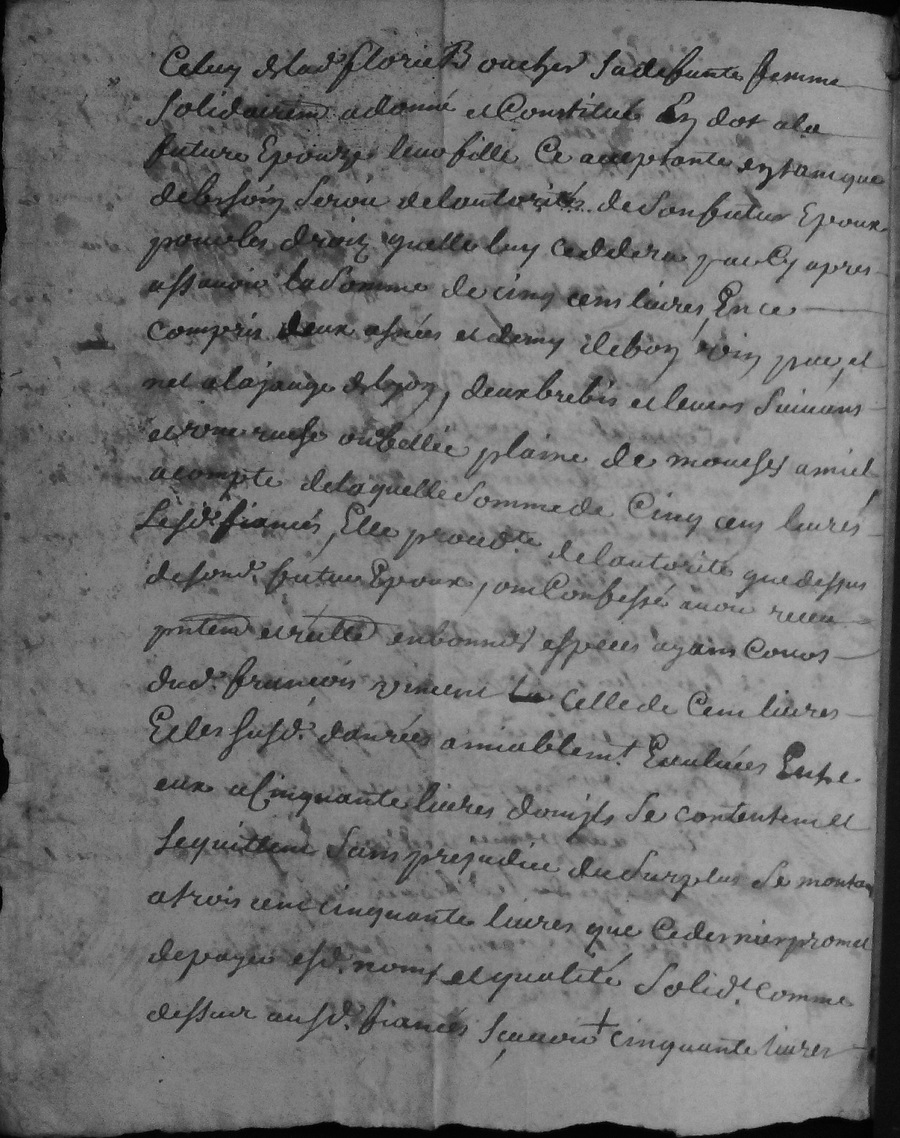 Celuy de lad. florie Boucher sa defunte femme
Solidairem adonné et Constitué En dot ala
future Epouze leur fille Ce acceptante entant que
debesoin seroit delautorité de Son futur Epoux
pour les droits quelle luy ceddera par Cy apres
assavoir la Somme de cinq cens livres, En ce
compris deux asnées et demy de bon vin pur, et
net ala jauge de lyon, deux brebis et leurs Suivans
et une ruche plaine de mouches amiel
acompte delaquelle Somme de Cinq cens livres
Lesd. fiancés, Elle proced.te delautorité que dessus
de sond. futur Epoux, ont Confessé avoir receu
pntem et réelle enbonnes especes ayans Cours
dud. francois vincent celle de Cent livres
Et les susd. danrées amiablem.t Evaluées Entre
eux a Cinquante livres dont ils Se contentent et
Lequittent Sans prejudice du Surplus Se montant
atrois cent cinquante livres que Cedernier promet
depayer esd. noms et qualité Solid.t comme
dessus ausd. fiancés Scavoir + cinquante livres